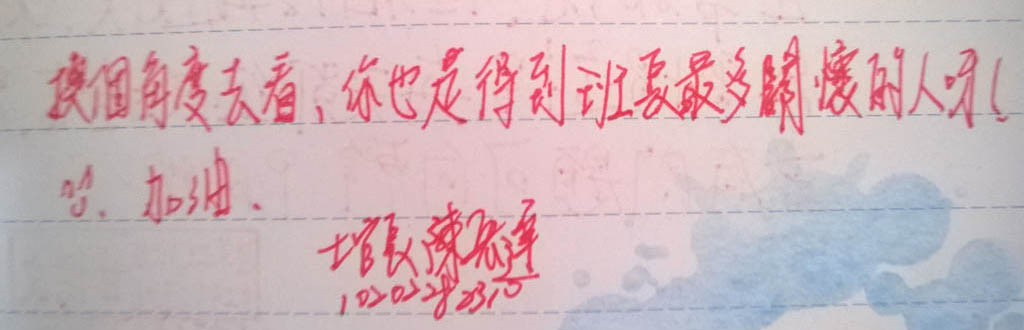 換個角度去看，你也是得到班長最多關懷的人呀！
加油.
長陳
1020228 2310